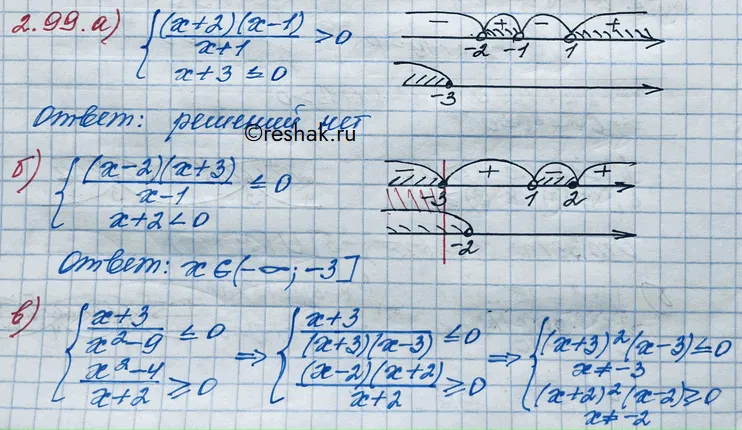 2.99. а) { (x+2)(x-1)/x+1 > 0
x+3 ≤ 0
- + - +
-2 -1 1
-3
Ответ: решений нет
©reshak.ru
б) { (x-2)(x+3)/x-1 ≤ 0
x+2<0
- + - +
-3 1 2
-2
Ответ: x∈(-∞; -3]
в) { x+3/x²-9 ≤ 0 ⇒ { x+3/(x+3)(x-3) ≤ 0 ⇒ { (x+3)²(x-3) ≤ 0
x≠-3
x²-4/x+2 ≥ 0 (x-2)(x+2)/x+2 ≥ 0 (x+2)²(x-2) ≥ 0
x≠-2